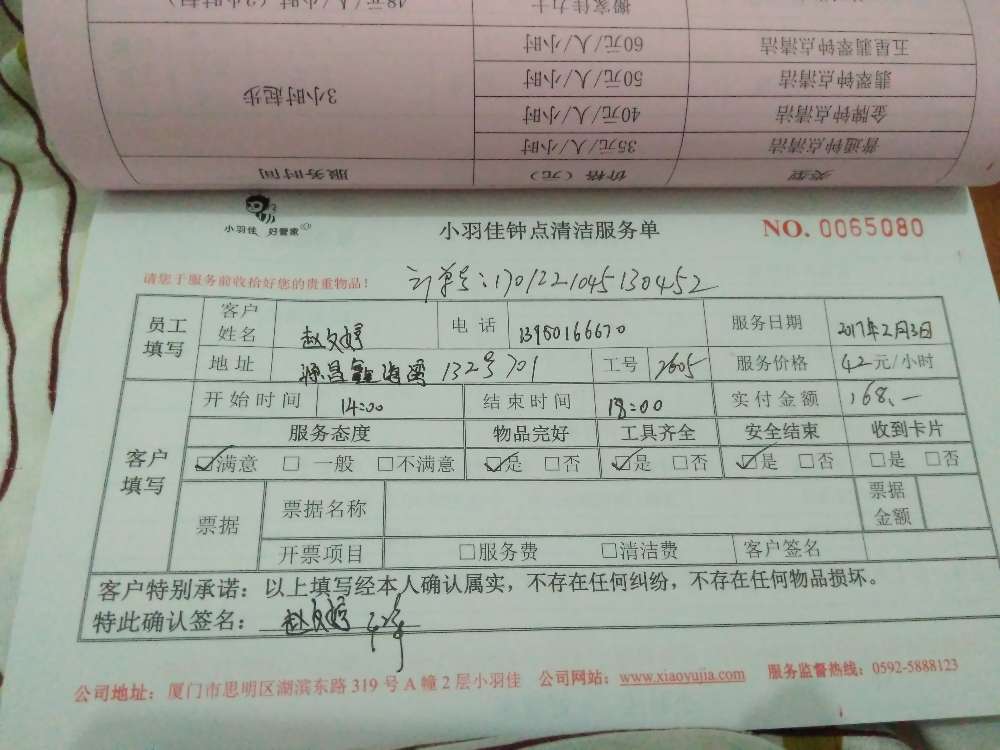 48元/人/小时（2小时起）
搬家佳力士
3小时起步
60元/人/小时
五星翡翠钟点清洁
50元/人/小时
翡翠钟点清洁
40元/人/小时
金牌钟点清洁
35元/人/小时
普通钟点清洁
服务时间
价格（元）
类型
小羽佳 好管家
小羽佳钟点清洁服务单
NO. 0065080
请您于服务前收拾好您的贵重物品！
订单号：1701221045130452
员工填写 客户姓名 赵文婷 电话 13950166670 服务日期 2017年2月3日
地址 源昌鑫海湾 132号701 工号 2605 服务价格 42元/小时
客户填写 开始时间 14:00 结束时间 18:00 实付金额 168.—
服务态度 物品完好 工具齐全 安全结束 收到卡片
☑满意 □一般 □不满意 ☑是 □否 ☑是 □否 ☑是 □否 □是 □否
票据 票据名称 票据金额
开票项目 □服务费 □清洁费 客户签名
客户特别承诺：以上填写经本人确认属实，不存在任何纠纷，不存在任何物品损坏。
特此确认签名：赵文婷
公司地址：厦门市思明区湖滨东路 319 号 A 幢 2 层小羽佳 公司网站：www.xiaoyujia.com 服务监督热线：0592-5888123